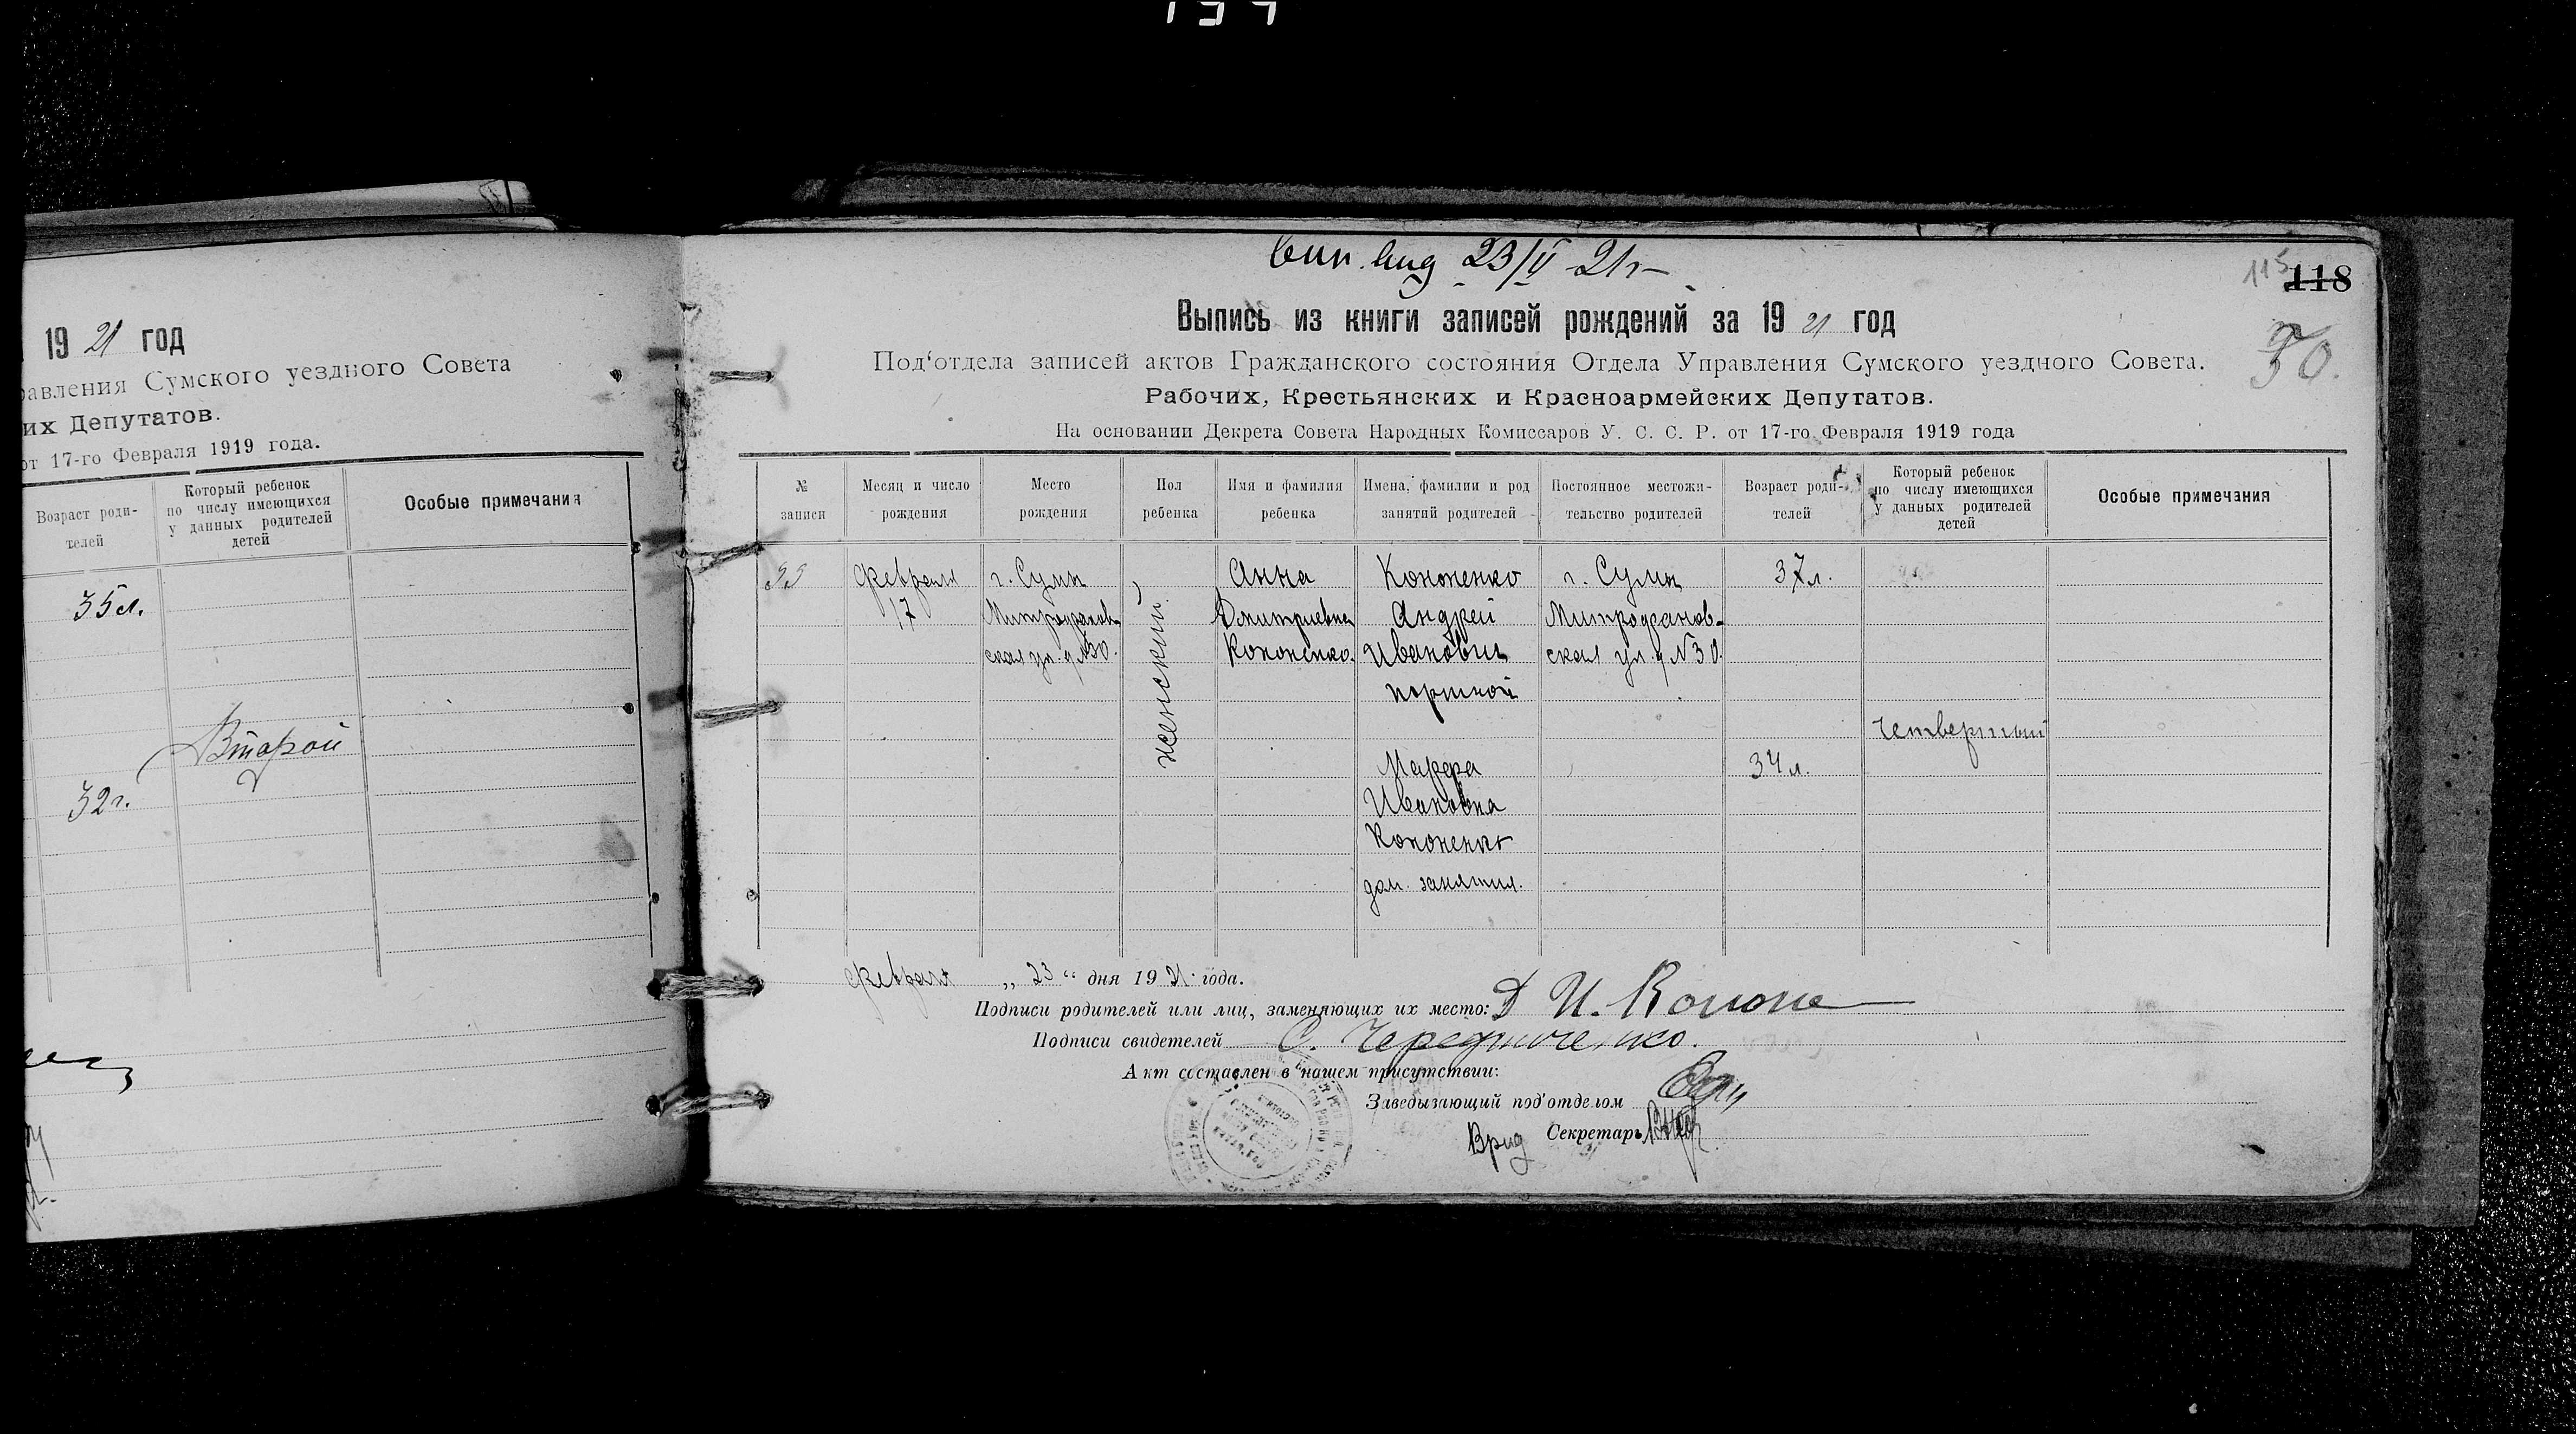 19 21 год
равления Сумского уездного Совета
их Депутатов.
от 17-го Февраля 1919 года.
Возраст роди-
телей
Который ребенок
по числу имеющихся
у данных родителей
детей
Особые примечания
35 л.
Второй
32 г.
23/II 21 г
115
118
30.
Выпись из книги записей рождений за 19 21 год
Под‘отдела записей актов Гражданского состояния Отдела Управления Сумского уездного Совета.
Рабочих, Крестьянских и Красноармейских Депутатов.
На основании Декрета Совета Народных Комиссаров У. С. С. Р. от 17-го Февраля 1919 года
№
записи
Месяц и число
рождения
Место
рождения
Пол
ребенка
Имя и фамилия
ребенка
Имена, фамилии и род
занятий родителей
Постоянное местожи-
тельство родителей
Возраст роди-
телей
Который ребенок
по числу имеющихся
у данных родителей
детей
Особые примечания
99
Февраля
17
г. Сумы
Митрофанов-
ская ул. д №30.
женский
Анна
Дмитриевна
Кононенко.
Кононенко
Андрей
Иванович
портной
Марфа
Ивановна
Кононенко
дом. занятия.
г. Сумы
Митрофанов-
ская ул. д №30.
37 л.
34 л.
Четвертый
Февраля „ 23 “ дня 19 21 года.
Подписи родителей или лиц, заменяющих их место: Д И. Конон
Подписи свидетелей С. Чередниченко.
Акт составлен в нашем присутствии:
Заведызающий под‘отделом
Врид Секретарь